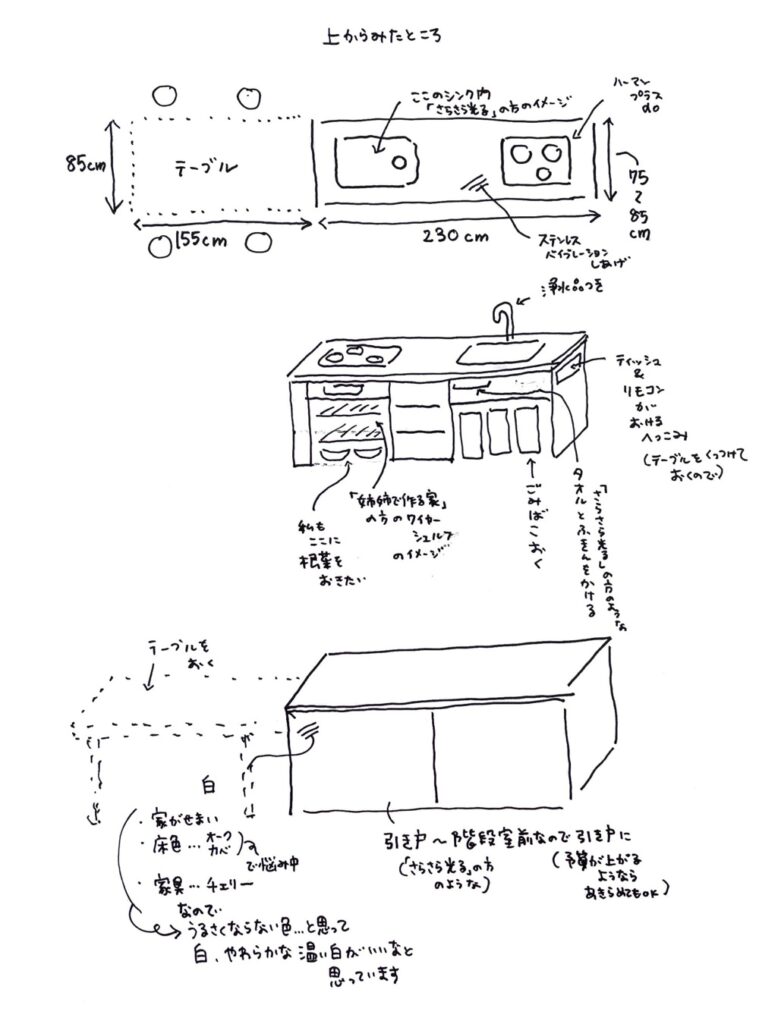 上からみたところ
ここのシンク内
「さらさら光る」の方のイメージ
ハーマン
プラス
do
85cm
テーブル
75
〜
85
cm
155cm
230cm
ステンレス
バイブレーション
しあげ
浄水器つき
ティッシュ
&
リモコン
が
おける
へっこみ
(テーブルをくっつけて
おくので)
私も
ここに
根菜を
おきたい
「姉妹で作る家」
の方のワイヤー
シェルフ
のイメージ
ごみばこおく
「さらさら光る」の方のような
タオルとふきんをかける
テーブルを
おく
白
・家がせまい
・床色…オーク
カバ
で悩み中
・家具…チェリー
なので
うるさくならない色…と思って
白、やわらかな温い白がいいなと
思っています
引き戸〜階段室前なので引き戸に
(「さらさら光る」の方
のような)
(予算が上がる
ようなら
あきらめてもOK)